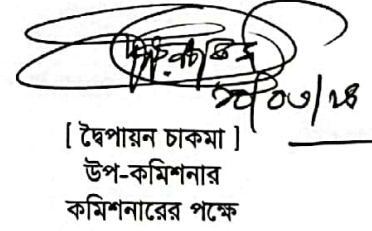 ১০/০৩/২৪
[ দ্বৈপায়ন চাকমা ]
উপ-কমিশনার
কমিশনারের পক্ষে